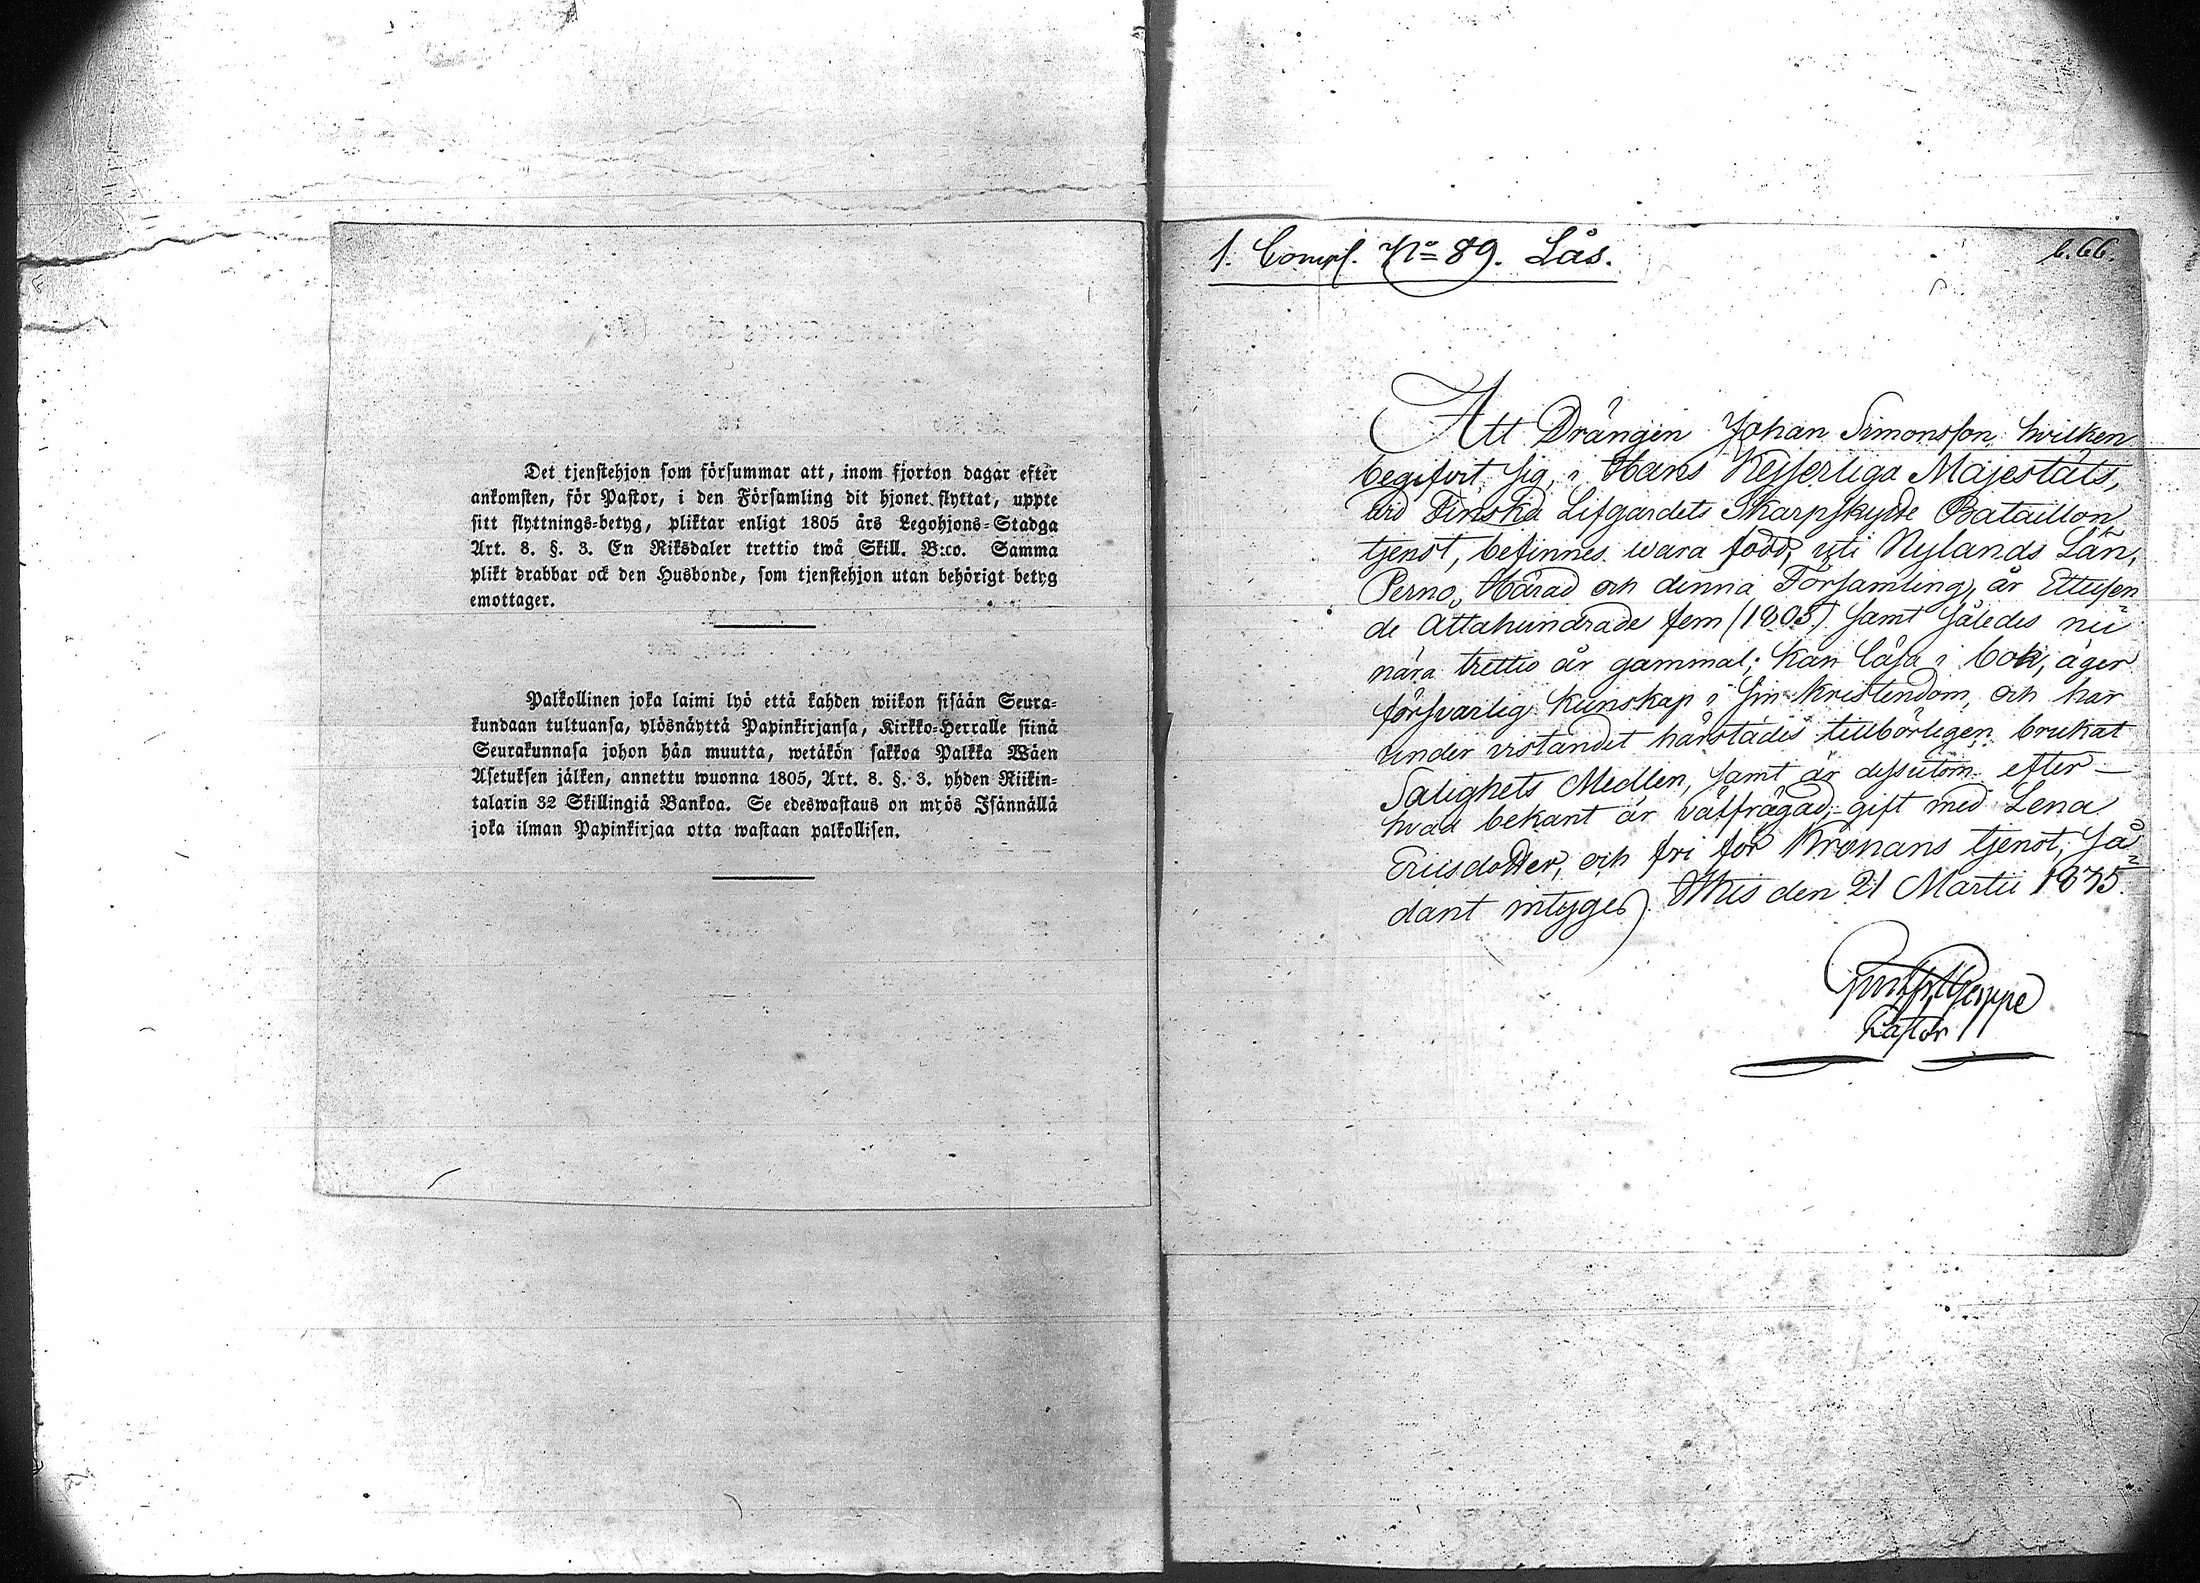 Det tjenstehjon som försummar att, inom fjorton dagar efter
ankomsten, för Pastor, i den Församling dit hjonet flyttat, uppte
sitt flyttnings-betyg, pliktar enligt 1805 års Legohjons-Stadga
Art. 8. §. 3. En Riksdaler trettio twå Skill. B:co. Samma
plikt drabbar ock den Husbonde, som tjenstehjon utan behörigt betyg
emottager.
Palkollinen joka laimi lyö että kahden wiikon sisään Seura-
kundaan tultuansa, ylösnäyttä Papinkirjansa, Kirkko-Herralle siinä
Seurakunnasa johon hän muutta, wetäkön sakkoa Palkka Wäen
Asetuksen jälken, annettu wuonna 1805, Art. 8. §. 3. yhden Riikin-
talarin 32 Skillingiä Bankoa. Se edeswastaus on myös Isännällä
joka ilman Papinkirjaa otta wastaan palkollisen.
1. Comp. No 89. Lås.
b.66.
Att Drängen Johan Simonsson hvilken
begifvit sig i Hans Kejserliga Majestäts,
wid Finska Lifgardets Skarpskytte Bataillon
tjenst, befinnes wara född, uti Nylands Län,
Perno Härad och denna Församling, år Ettusen
de Åttahundrade fem (1805) samt således nu
nära trettio år gammal; kan läsa i bok, äger
försvarlig kunskap i sin kristendom, och har
under vistandet härstädes tillbörligen brukat
Salighets Medlen, samt är dessutom efter-
hvad bekant är välfrägdad, gift med Lena
Ericsdotter, och fri för Kronans tjenst, Så
dant intyges. den 21 Martii 1835.
Pastor